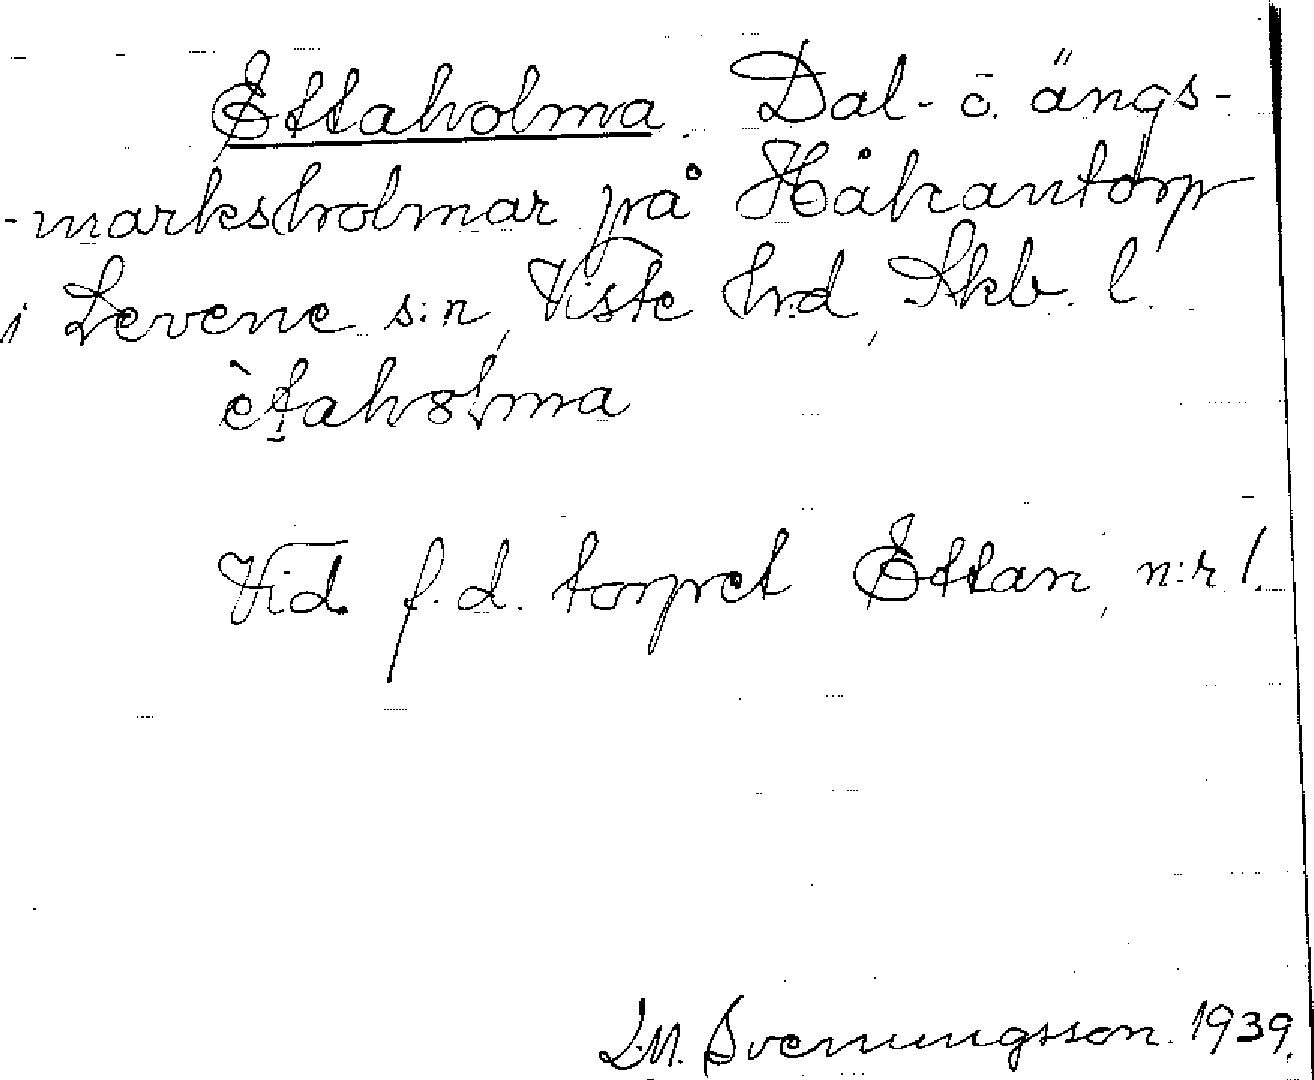 Ettaholma. Dal- o. ängs-
-marksholmar på Håkantorp
i Levene s:n, Viste hrd, Skb. l.
ètaholma
Vid f.d. torpet Ettan, n:r 1.
L.M. Svenungsson. 1939.